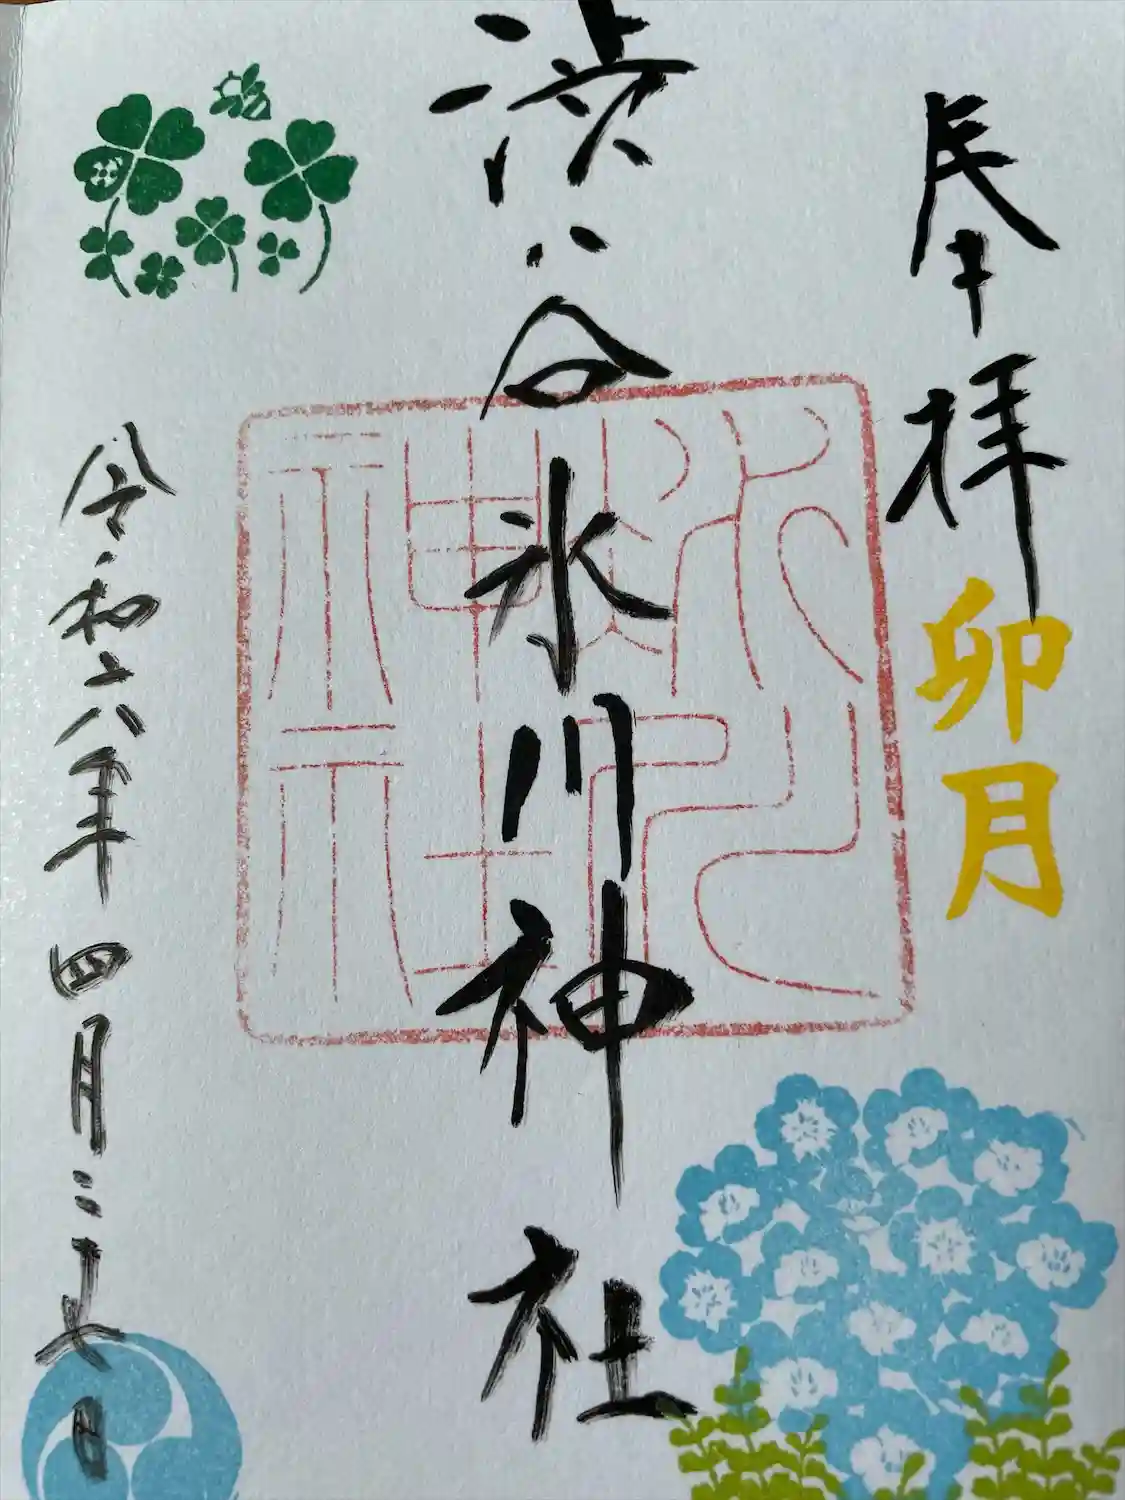 奉拝
卯月
渋谷氷川神社
令和六年四月二十日